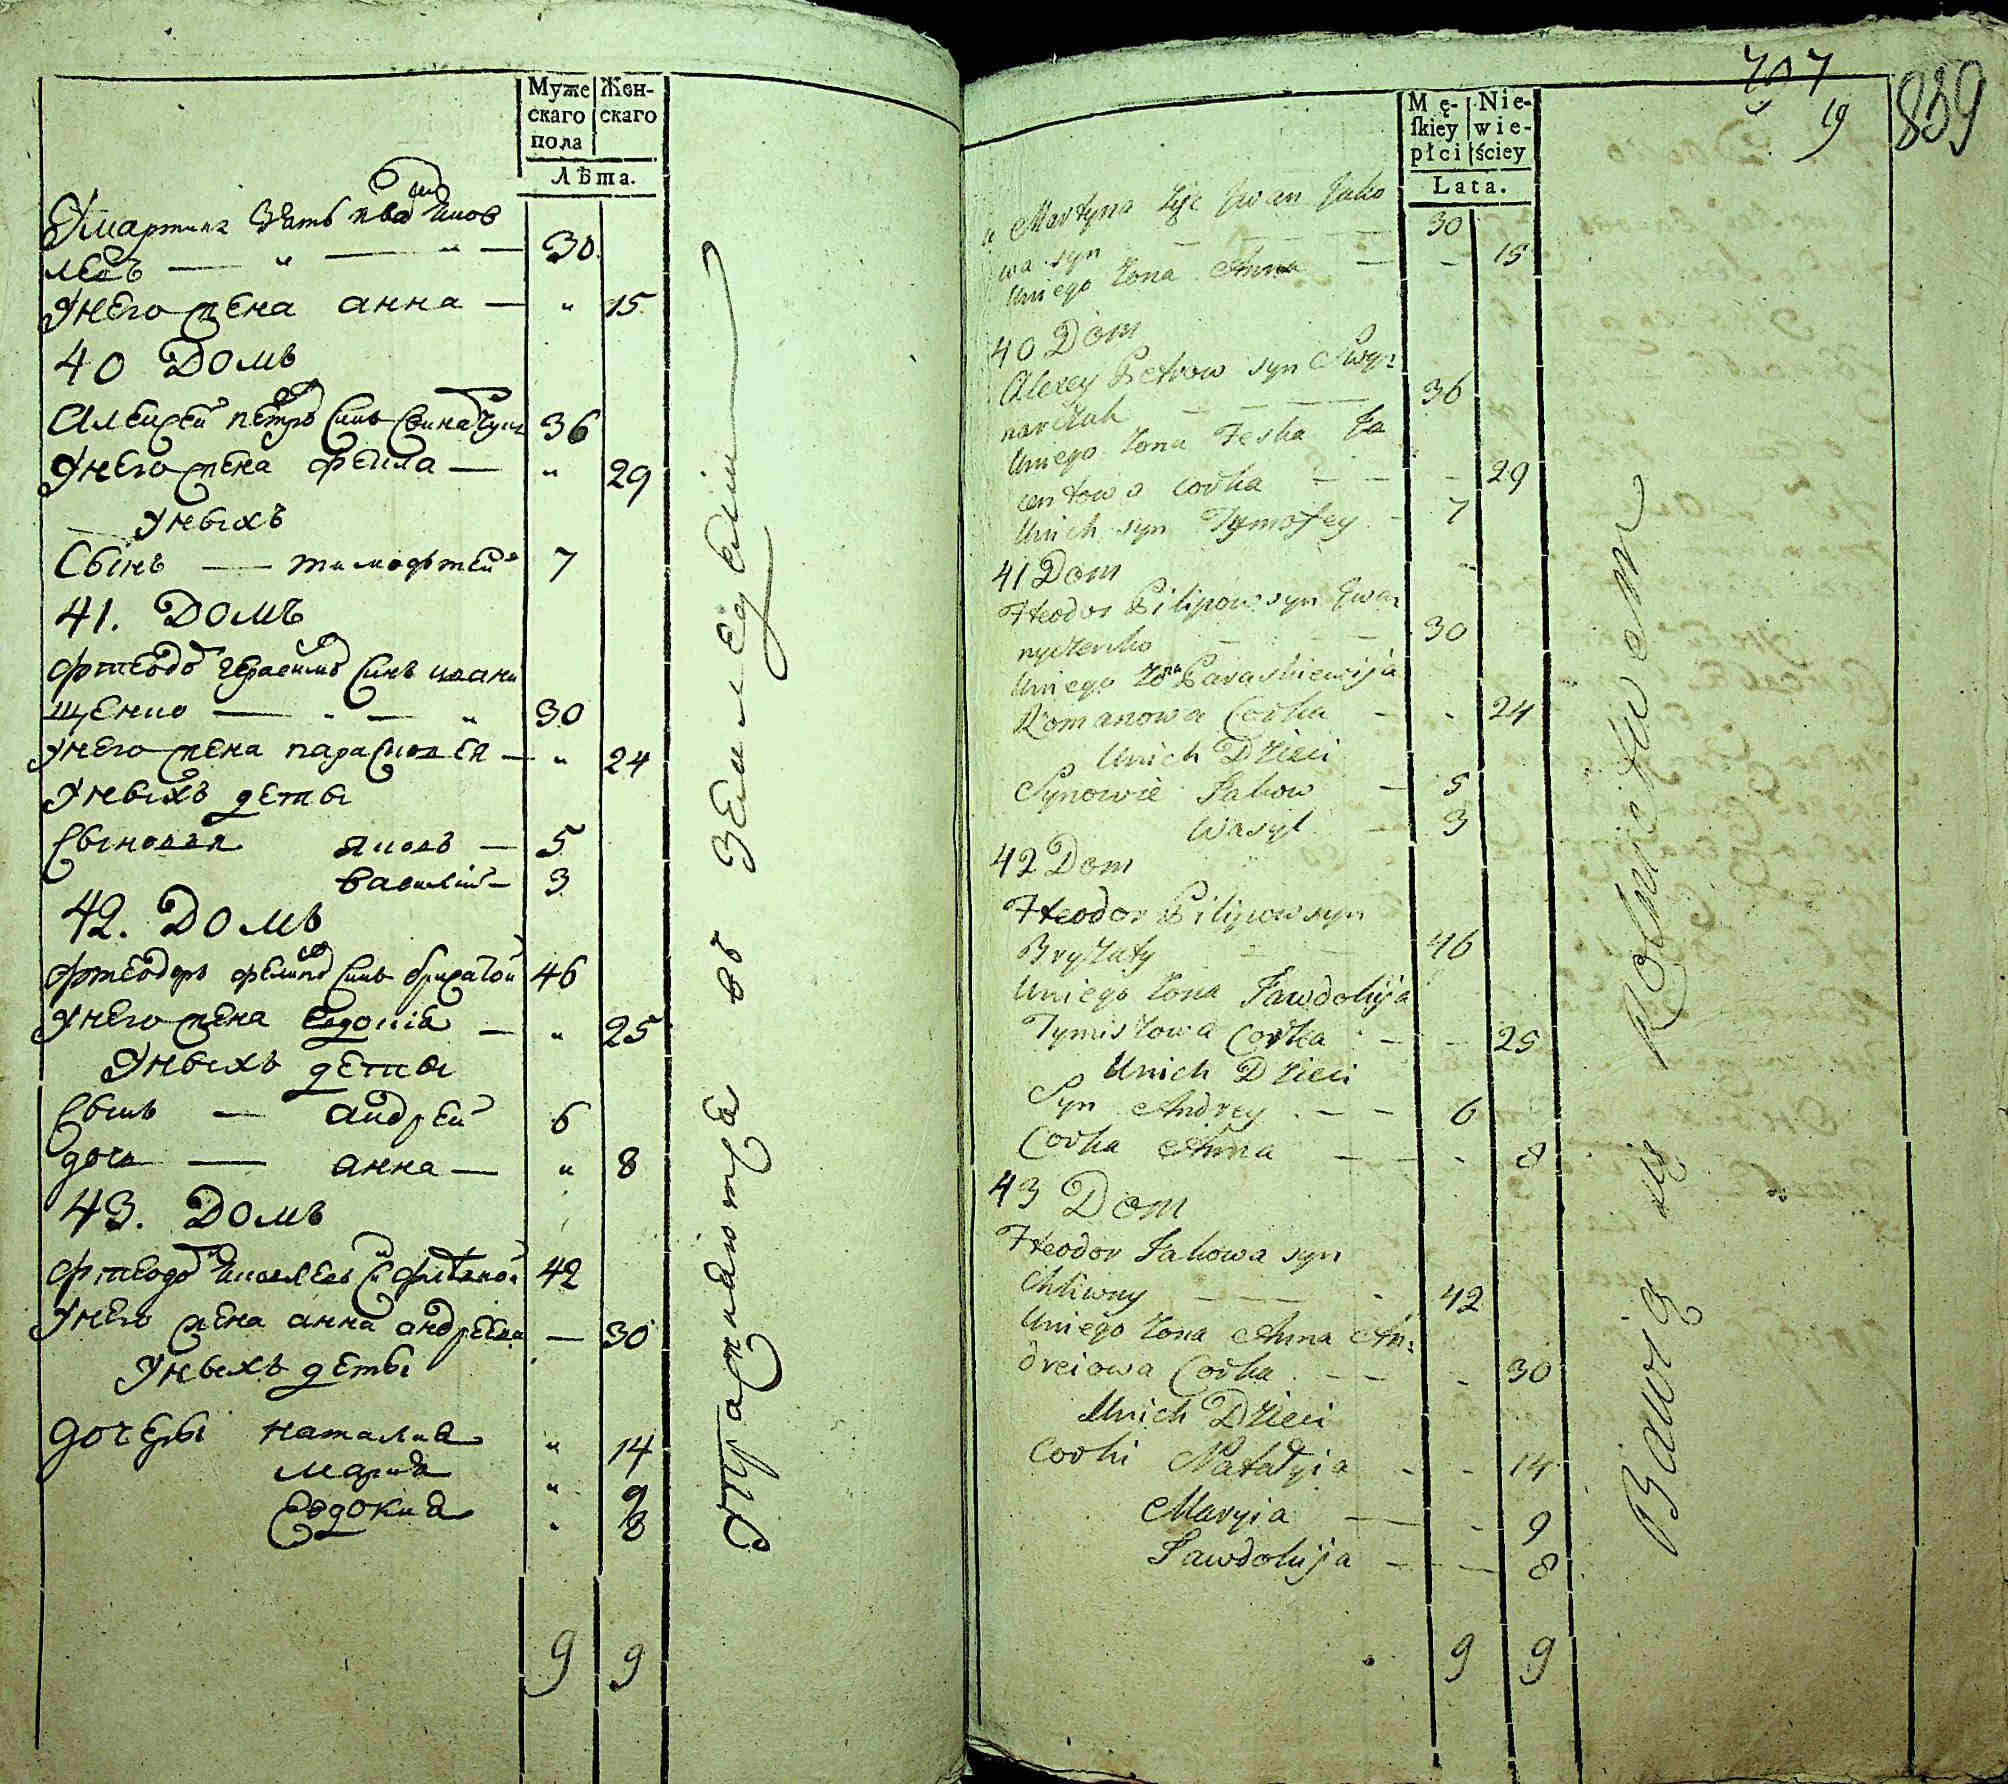 Муже Жен-
скаго скаго
пола
Лѣта.
Умартина Зять Иван Яков
левъ — " — " — 30
Унего жена анна — " 15
40 Домъ
Алексей петровъ Синъ 36
Унего жена Фекла — " 29
— Унихъ
Сынъ — тимофтей 7
41. Домъ
Фтеодо герасимов Синъ иван
щенко — " — " 30
Унего жена параскоя — " 24
Унихъ дети
Сыновья яковъ — 5
василий — 3
42. Домъ
Фтеодоръ филипов Синъ брижатой 46
Унего жена Евдокия — " 25
Унихъ дети
Сынъ — андрей 6
дочь — анна — " 8
43. Домъ
Фтеодо Яковлевъ 42
Унего жена анна андреева — 30
Унихъ дети
дочери наталия " 14
мария " 9
Евдокия " 8
9 9
упражняютца въ Земледелии
707
19
859
Mę- Nie-
ſkiey wie-
płci ściey
Lata.
u Martyna Zięć Iwan Jako
wa syn — 30
Uniego Zona Anna — - 15
40 Dom
Alexey Petrow syn Swy:
narczuk — 36
Uniego Zona Feska Ja
centowa Corka — - 29
Unich syn Tymofey - 7
41 Dom
Fteodor Pilipow syn Iwa:
nyczenko — 30
Uniego Zona Paraskiewija
Romanowa Corka — - 24
Unich Dzieci
Synowie Jakow — 5
Wasyl — 3
42 Dom
Fteodor Pilipow syn
Bryzaty — 46
Uniego Zona Jawdokija
Tymiszowa Corka — - 25
Unich Dzieci
Syn Andrey — 6
Corka Anna — - 8
43 Dom
Fteodor Jakowa syn
Chliwny — 42
Uniego Zona Anna An:
dreiowa Corka — - 30
Unich Dzieci
Corki Natalyia - - 14
Maryia — - 9
Jawdokija — - 8
9 9
Bawią się Rolnictwem